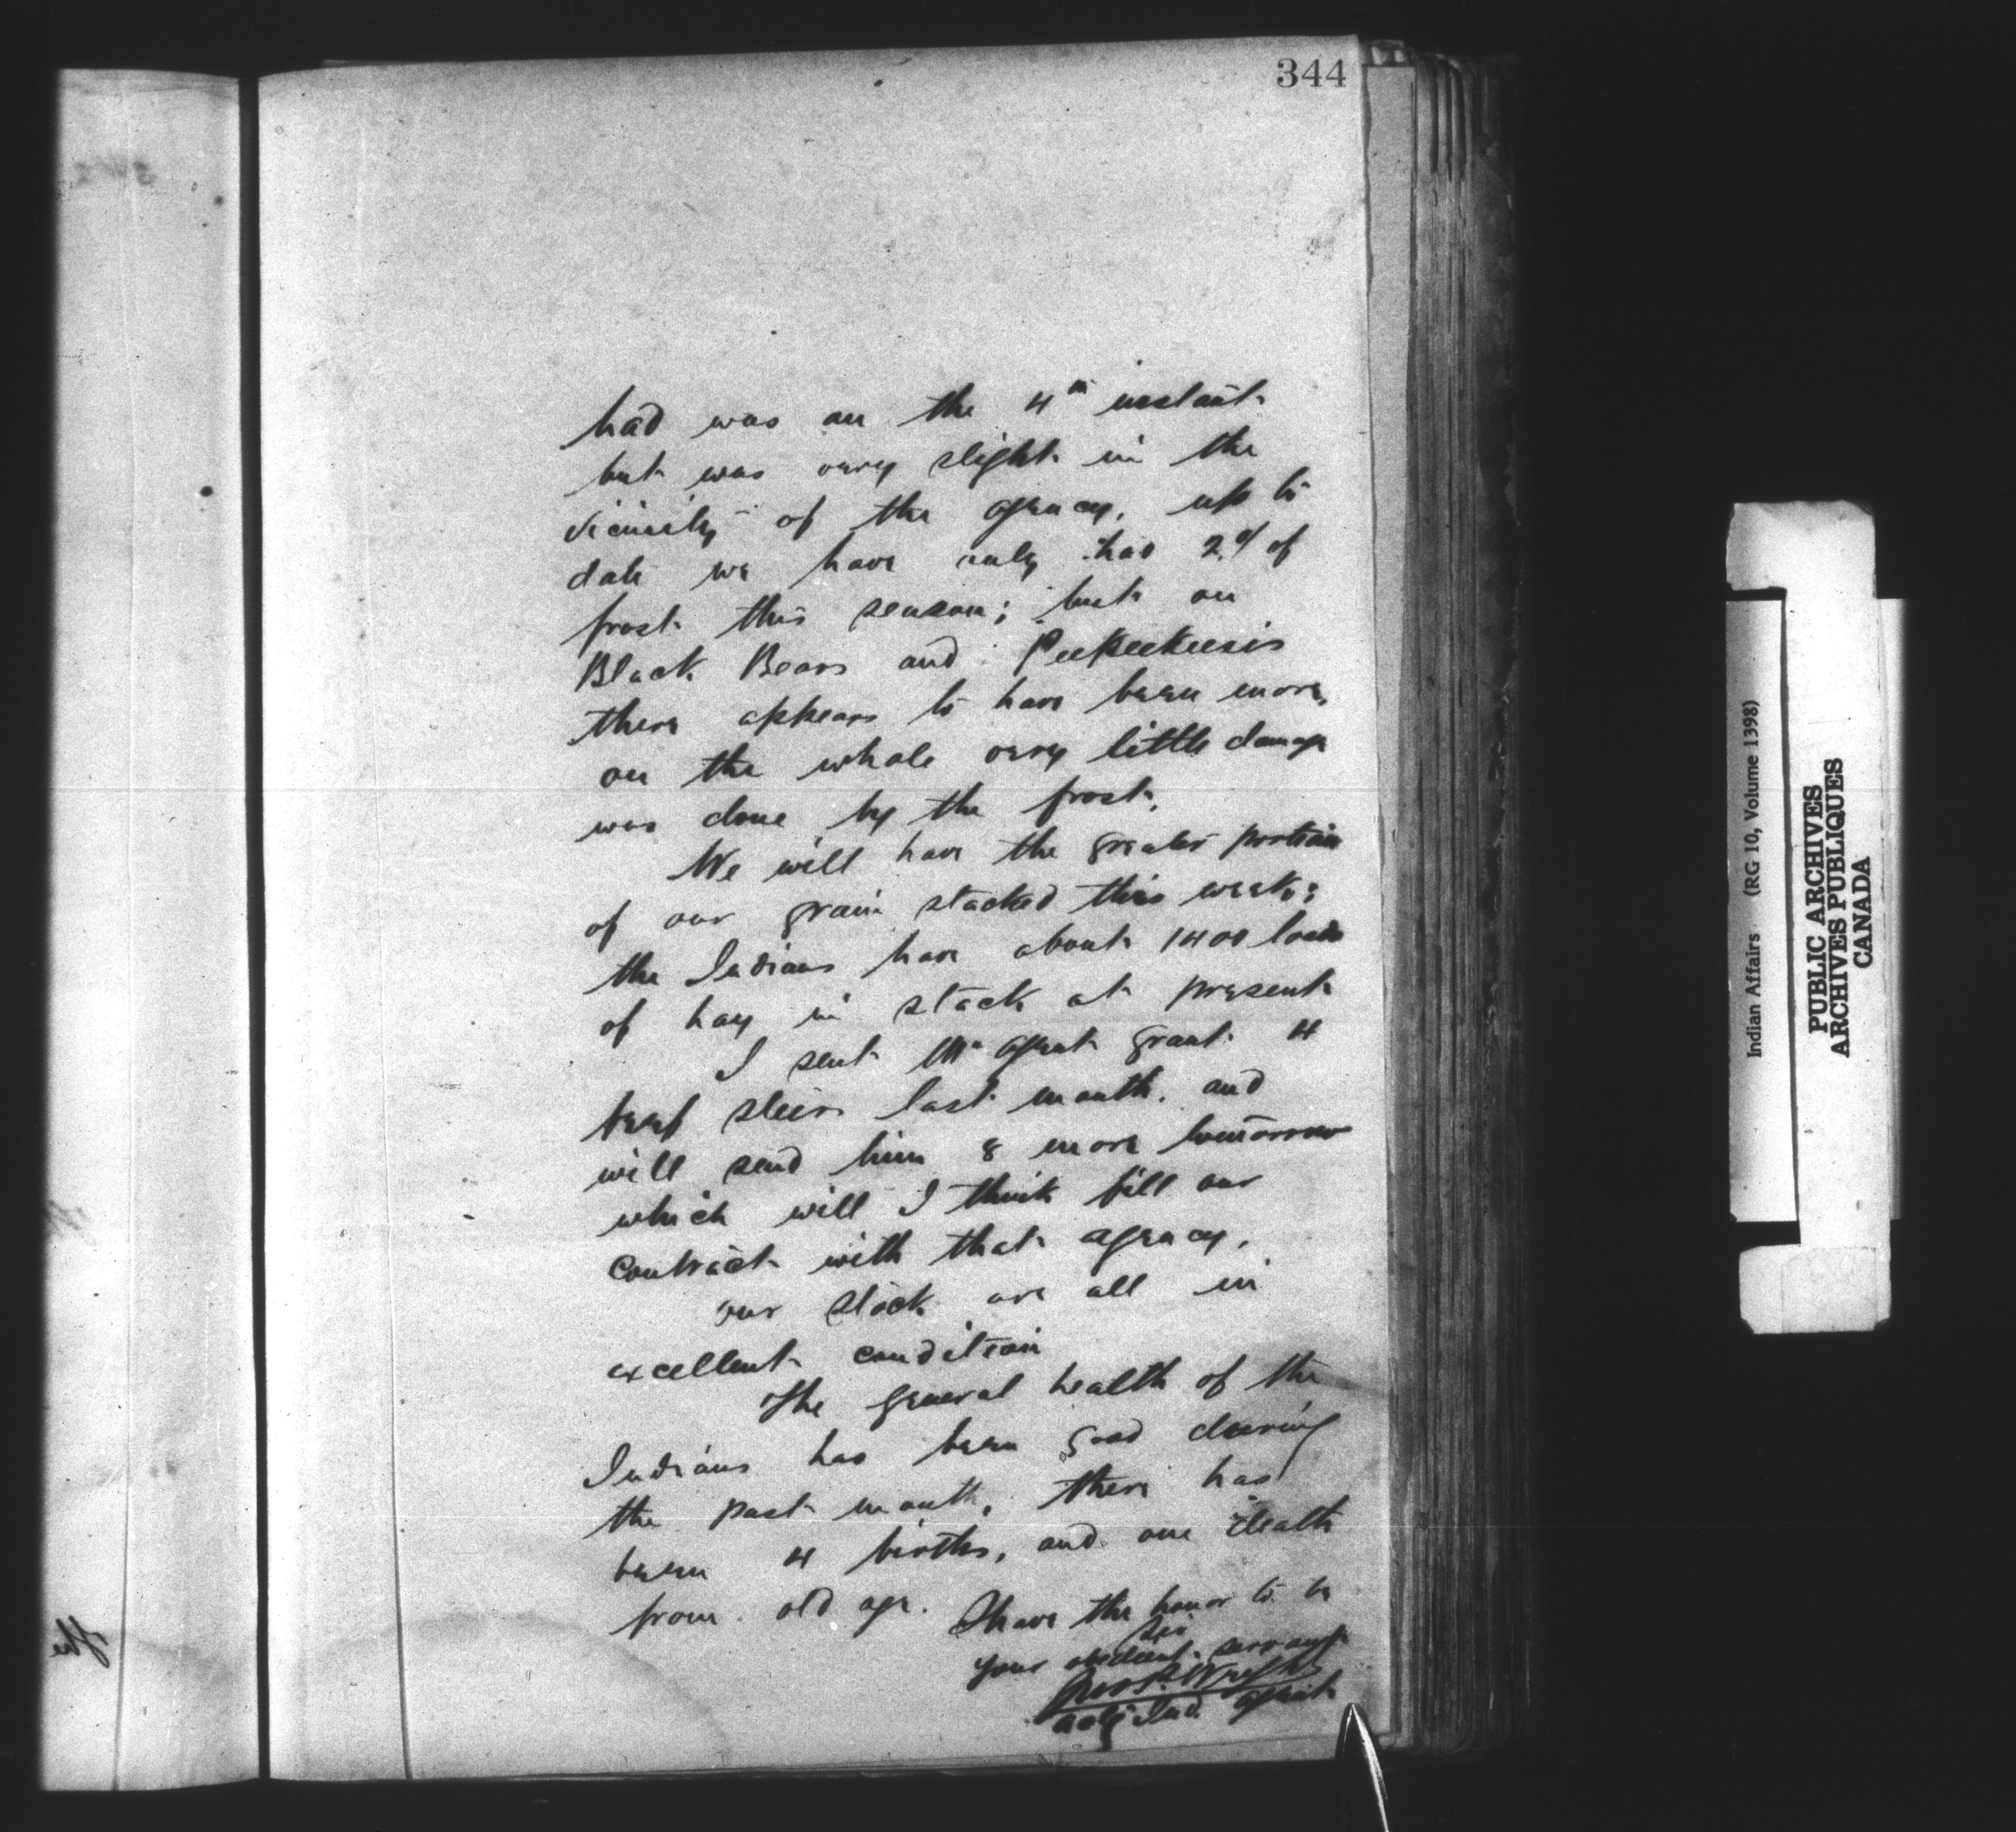 344
had was on the 4th instant
but was very slight in the
vicinity of the agency, up to
date we have only had 2° of
frost this season; but on
Black Bears and Peekeekeesis
there appears to have been more,
on the whole very little damage
was done by the frost.
We will have the greater portion
of our grain stacked this week;
the Indians have about 1400 loads
of hay in stack at present
I sent Mr Agent Grant 4
beef steers last month. and
will send him 8 more tomorrow
which will I think fill our
contract with that agency.
our stock are all in
excellent condition
The general health of the
Indians has been good during
the past month, there has
been 4 births, and one death
from old age.
I have the honor to be
Sir
your obedient servant
Wright
actg Ind. Agent
the
Indian Affairs (RG 10, Volume 1398)
PUBLIC ARCHIVES
ARCHIVES PUBLIQUES
CANADA